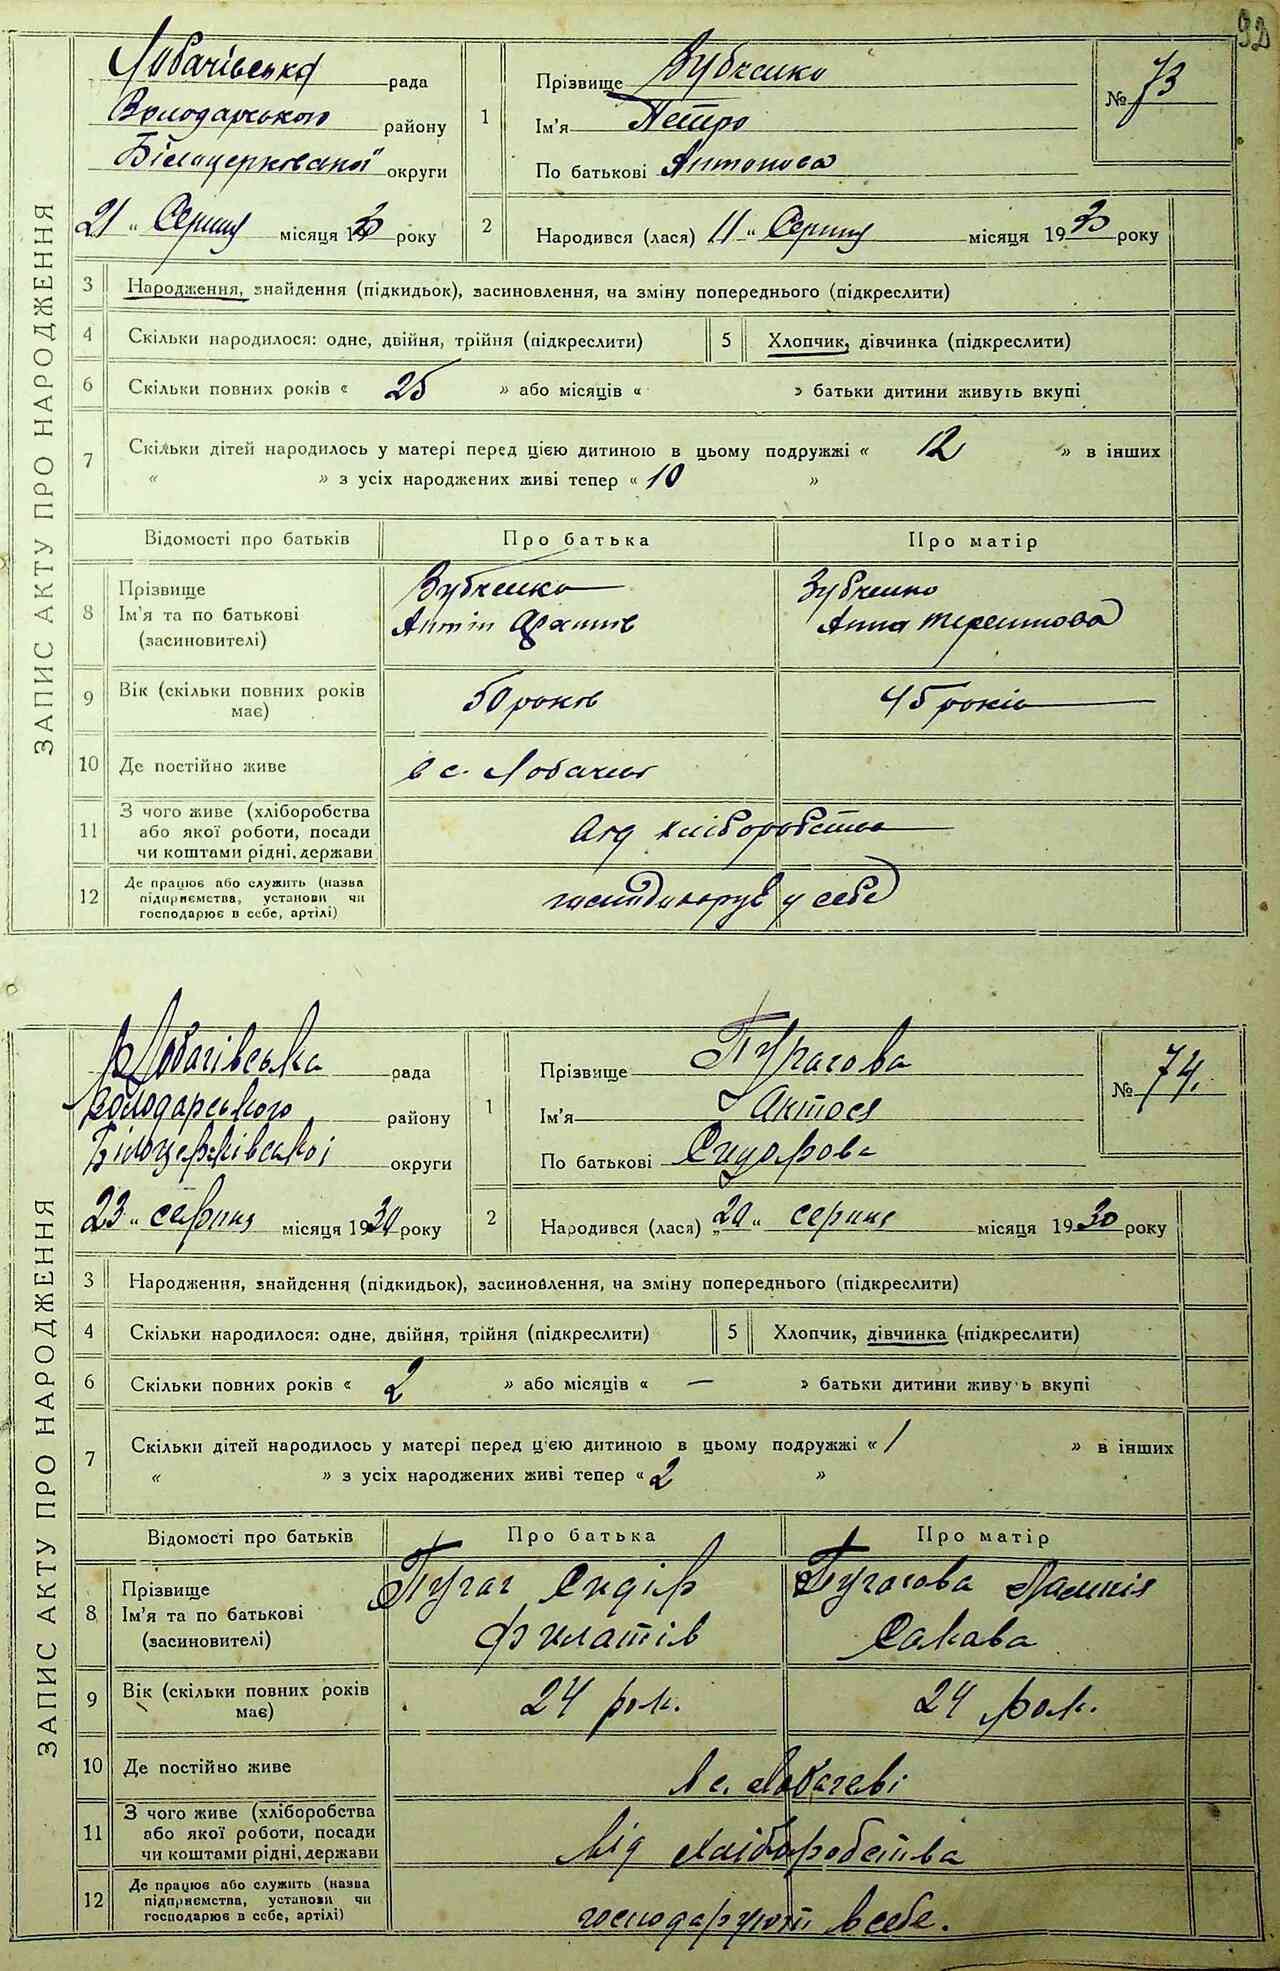 92
ЗАПИС АКТУ ПРО НАРОДЖЕННЯ
Лобачівська рада
Володарського району
Білоцерківської округи
21 „ Серпня місяця 1930 року
1
Прізвище Зубченко
Ім'я Петро
По батькові Антонова
№ 73
2
Народився (лася) 11 „ Серпня місяця 1930 року
3 Народження, знайдення (підкидьок), засиновлення, на зміну попереднього (підкреслити)
4 Скільки народилося: одне, двійня, трійня (підкреслити) 5 Хлопчик, дівчинка (підкреслити)
6 Скільки повних років « 25 » або місяців « » батьки дитини живуть вкупі
7 Скільки дітей народилось у матері перед цією дитиною в цьому подружжі « 12 » в інших
« » з усіх народжених живі тепер « 10 »
Відомості про батьків Про батька Про матір
8 Прізвище Зубченко Зубченко
Ім'я та по батькові Антін Анна Терешкова
(засиновителі)
9 Вік (скільки повних років має) 50 років 45 років
10 Де постійно живе в с. Лобачеві
11 З чого живе (хліборобства
або якої роботи, посади
чи коштами рідні, держави хліборобства
12 Де працює або служить (назва
підприємства, установи чи
господарює в себе, артілі) у себе
ЗАПИС АКТУ ПРО НАРОДЖЕННЯ
Лобачівська рада
Володарського району
Білоцерківської округи
23 „ серпня місяця 1930 року
1
Прізвище Пугачова
Ім'я Антося
По батькові Сидорова
№ 74.
2
Народився (лася) „20 „ серпня місяця 1930 року
3 Народження, знайдення (підкидьок), засиновлення, на зміну попереднього (підкреслити)
4 Скільки народилося: одне, двійня, трійня (підкреслити) 5 Хлопчик, дівчинка (підкреслити)
6 Скільки повних років « 2 » або місяців « — » батьки дитини живуь вкупі
7 Скільки дітей народилось у матері перед цією дитиною в цьому подружжі « 1 » в інших
« » з усіх народжених живі тепер « 2 »
Відомості про батьків Про батька Про матір
8 Прізвище Пугач Сидір Пугачова
Ім'я та по батькові Филатів Сакава
(засиновителі)
9 Вік (скільки повних років має) 24 рок. 24 рок.
10 Де постійно живе В с. Лобачеві
11 З чого живе (хліборобства
або якої роботи, посади
чи коштами рідні, держави від хліборобства
12 Де працює або служить (назва
підприємства, установи чи
господарює в себе, артілі) господарують в себе.